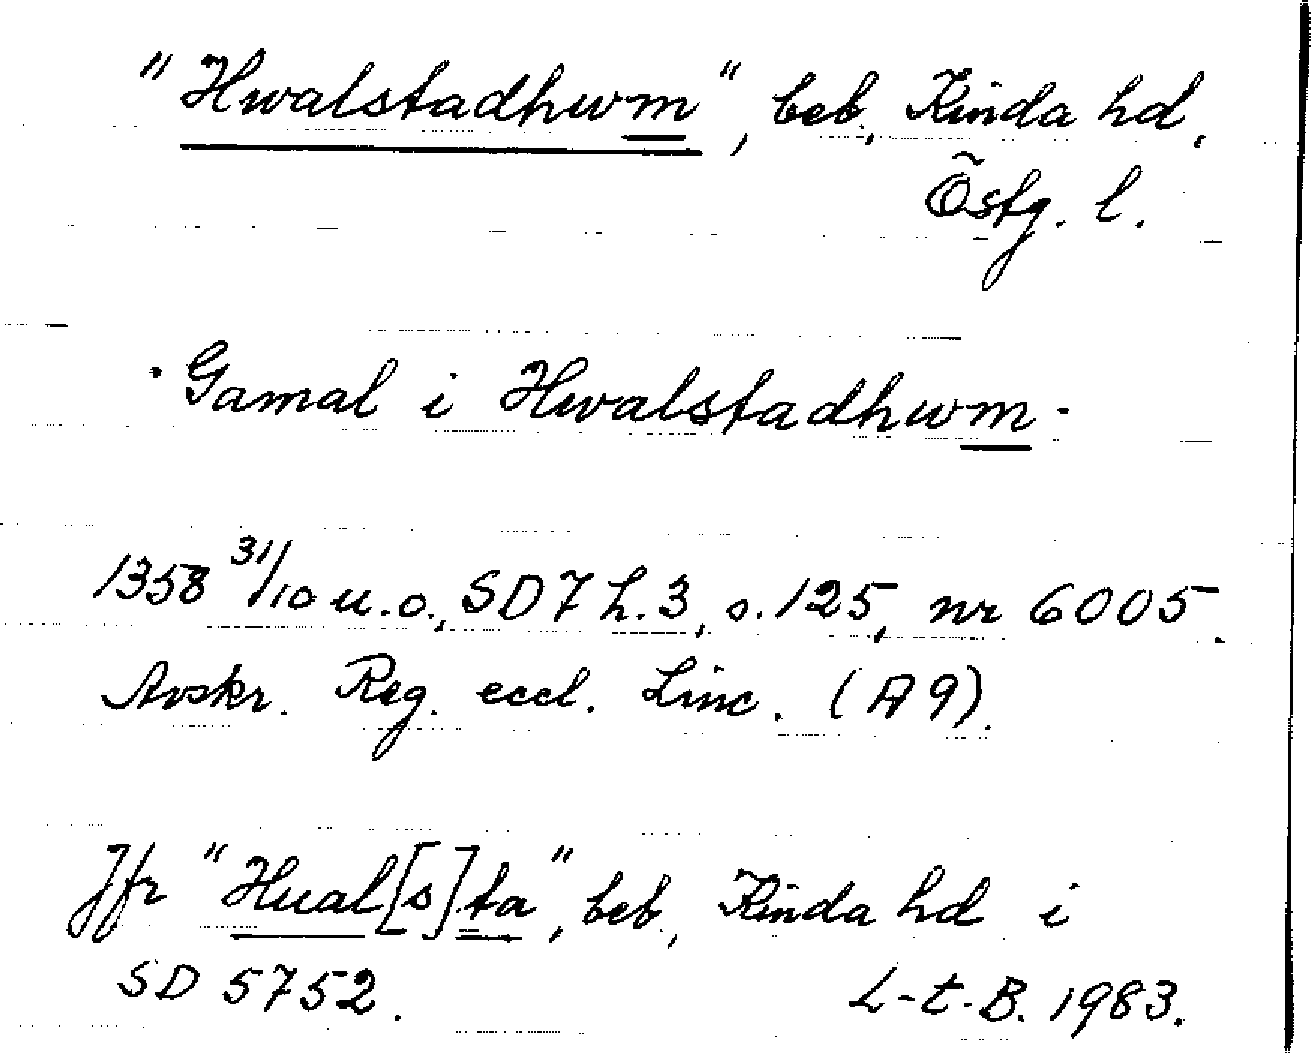 "Hwalstadhwm", beb., Kinda hd.
Östg. l.
· Gamal i Hwalstadhwm ·
1358 31/10 u.o., SD 7 h. 3, s. 125, nr 6005.
Avskr. Reg. eccl. Linc. (A 9).
Jfr "Hual[s]ta", beb., Kinda hd i
SD 5752.
L-t-B. 1983.